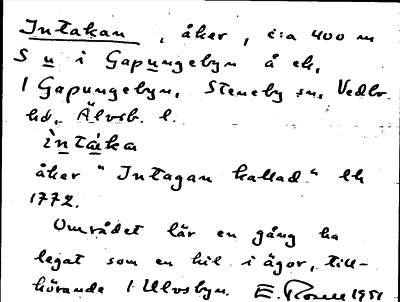 Intakan, åker, c:a 400 m
S u i Gapungebyn å ek.
1 Gapungebyn, Steneby sn, Vedbo
hd, Älvsb. l.
ìntáka
åker "Intagan kallad" lh
1772.
Området lär en gång ha
legat som en kil i ägor, till-
hörande 1 Ulvsbyn. E. Rosell 1951